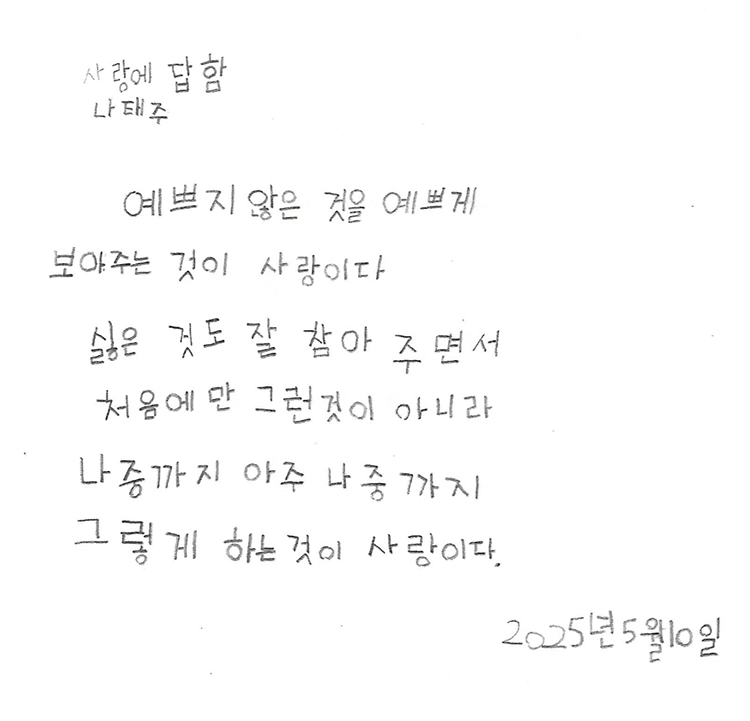 사랑에 답함
나태주
예쁘지 않은 것을 예쁘게
보아주는 것이 사랑이다
싫은 것도 잘 참아 주면서
처음에만 그런것이 아니라
나중까지 아주 나중까지
그렇게 하는것이 사랑이다.
2025년 5월10일